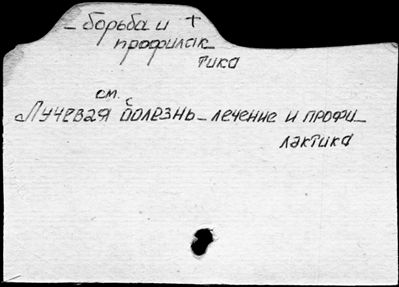 – борьба и +
профилак
тика
см.
Лучевая болезнь – лечение и профи –
лактика